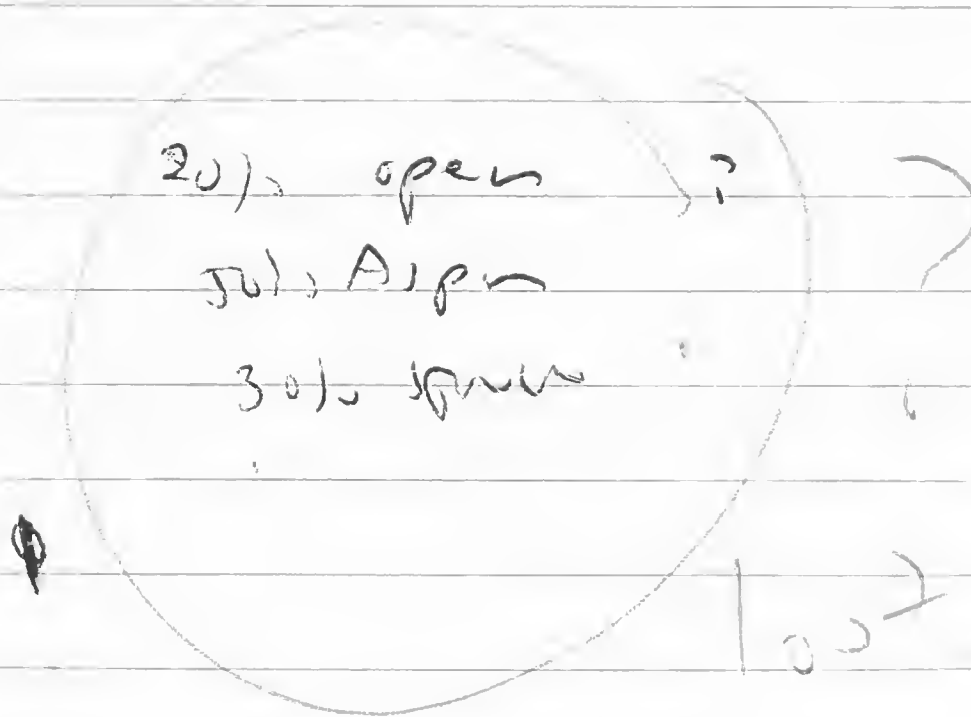 20% open ?
50% Aspen
30% spruce